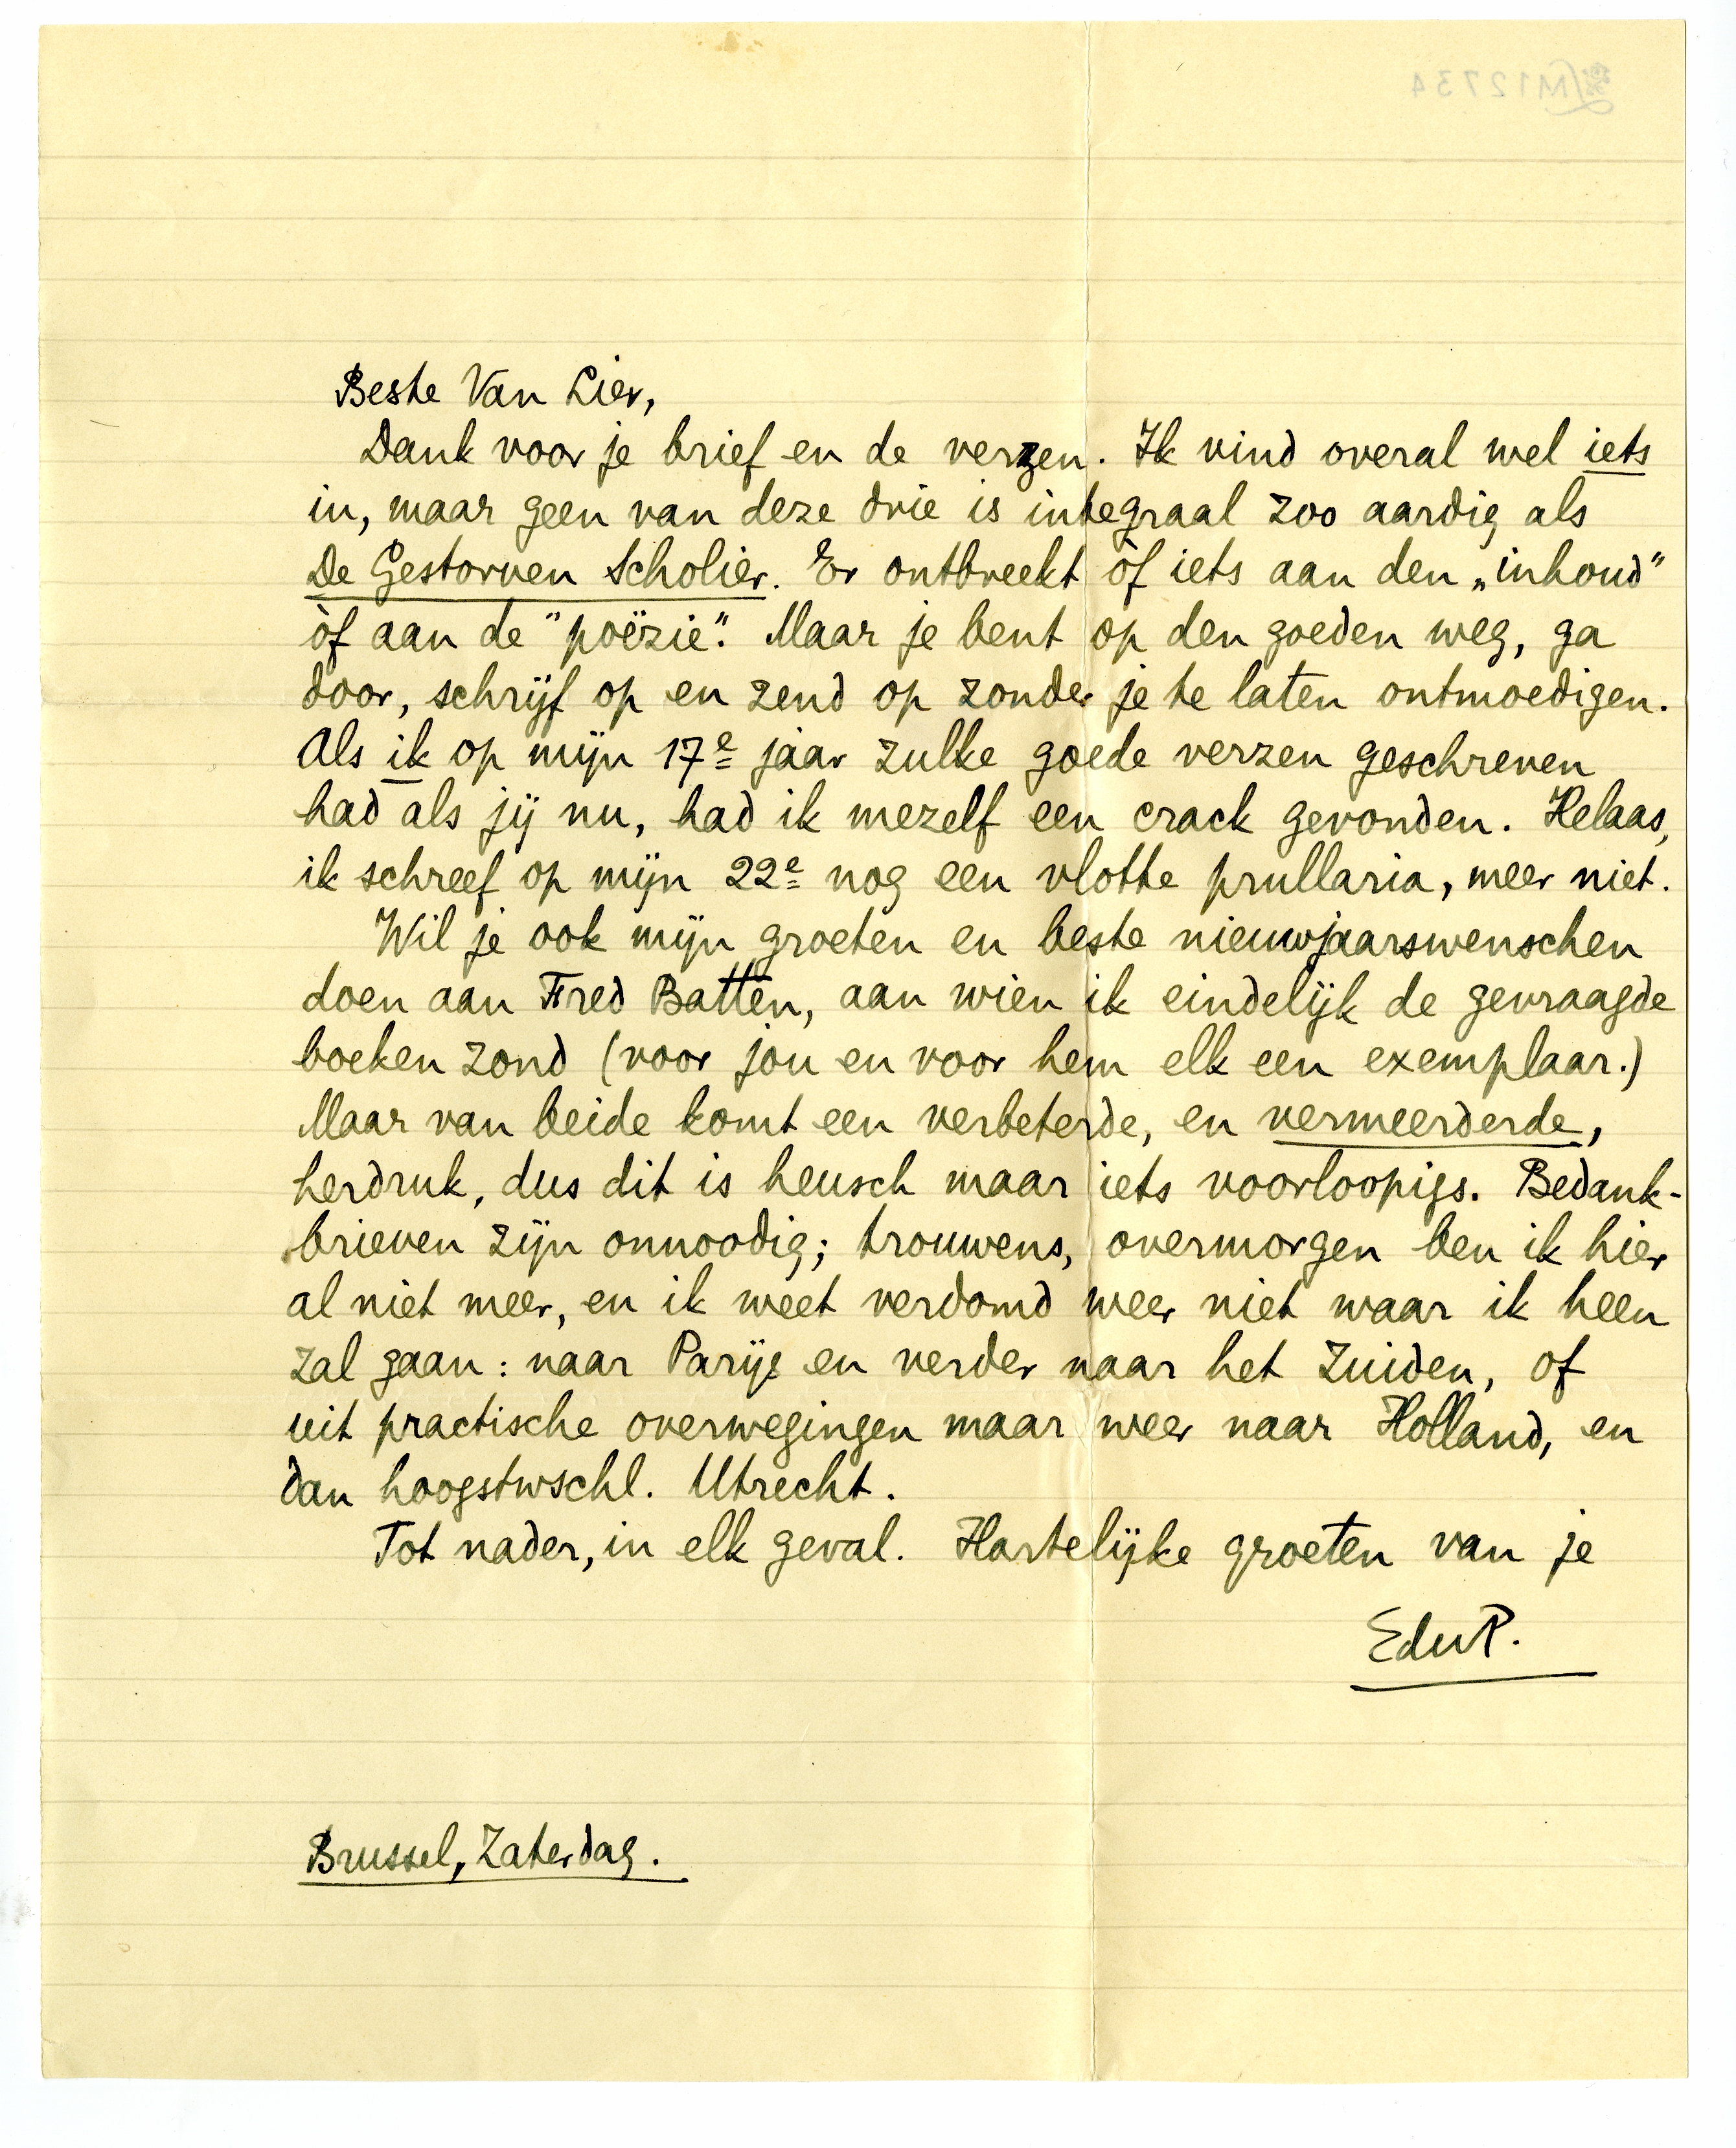 Beste Van Lier,
Dank voor je brief en de verzen. Ik vind overal wel iets
in, maar geen van deze drie is integraal zoo aardig als
De Gestorven Scholier. Er ontbreekt òf iets aan den „inhoud"
òf aan de "poëzie". Maar je bent op den goeden weg, ga
door, schrijf op en zend op zonder je te laten ontmoedigen.
Als ik op mijn 17e jaar zulke goede verzen geschreven
had als jij nu, had ik mezelf een crack gevonden. Helaas,
ik schreef op mijn 22e nog een vlotte prullaria, meer niet.
Wil je ook mijn groeten en beste nieuwjaarswenschen
doen aan Fred Batten, aan wien ik eindelijk de gevraagde
boeken zond (voor jou en voor hem elk een exemplaar.)
Maar van beide komt een verbeterde, en vermeerderde,
herdruk, dus dit is heusch maar iets voorloopigs. Bedank-
brieven zijn onnoodig; trouwens, overmorgen ben ik hier
al niet meer, en ik weet verdomd weer niet waar ik heen
zal gaan: naar Parijs en verder naar het Zuiden, of
uit practische overwegingen maar weer naar Holland, en
dan hoogstwschl. Utrecht.
Tot nader, in elk geval. Hartelijke groeten van je
EduP.
Brussel, Zaterdag.